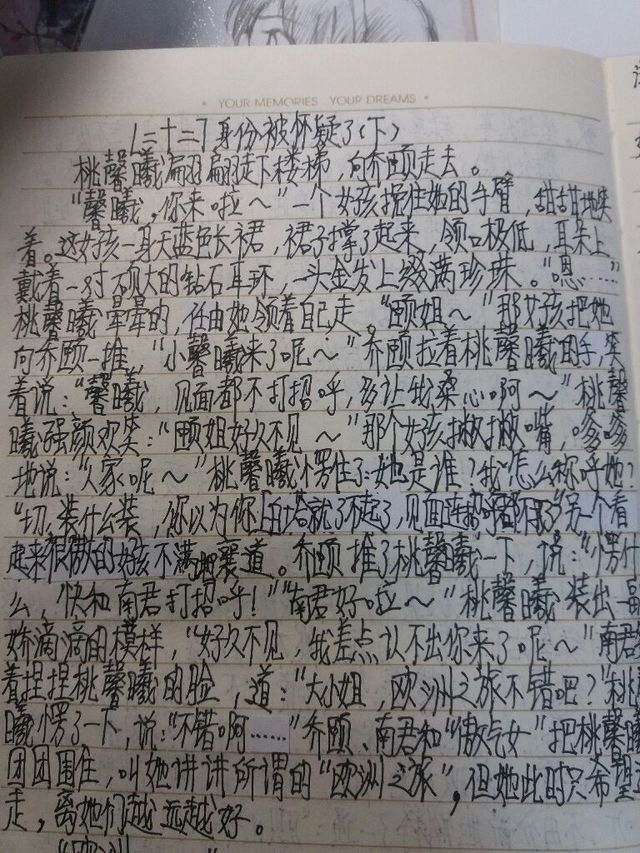 YOUR MEMORIES YOUR DREAMS
[二十二] 身份被怀疑了(下)
桃馨曦翩翩徒下楼梯，向乔颐走去。
“馨曦，你来啦～”一个女孩挽住她的手臂，甜甜地笑
着。这好孩一身天蓝色长裙，裙子撑了起来，领口极低，耳朵上
戴着一对不规大的钻石耳环，一头金发上缀满珍珠。“嗯……”
桃馨曦晕晕的，任由她领着自己走。“颐姐～”那女孩把她
向乔颐一推，“小馨曦来了呢～”乔颐拉着桃馨曦的手，笑
着说：“馨曦，见面都不打招呼，多让我桑心啊～”桃馨
曦强颜欢笑：“颐姐好久不见～”那个好孩撇撇嘴，嗲嗲
地说：“人家呢～”桃馨曦愣住了：她是谁？我怎么称呼她？
“切，装什么装，你以为你白塔就了不起了，见面连招呼都不打了”另一个看
起来很傲的好孩不满地襄道。乔颐推了桃馨曦一下，说：“愣什
么，快和南君打招呼！”“南君好啦～”桃馨曦装出一副
娇滴滴的模样，“好久不见，我差点认不出你来了呢～”南君
着捏捏桃馨曦的脸，道：“大小姐，欧洲之旅不错吧？”桃
曦愣了一下，说：“不错啊……”乔颐、南君和“傲气女”把桃馨曦
团团围住，叫她讲讲所谓的“欧洲之旅”，但她此时只希望
走，离她们越远越好。